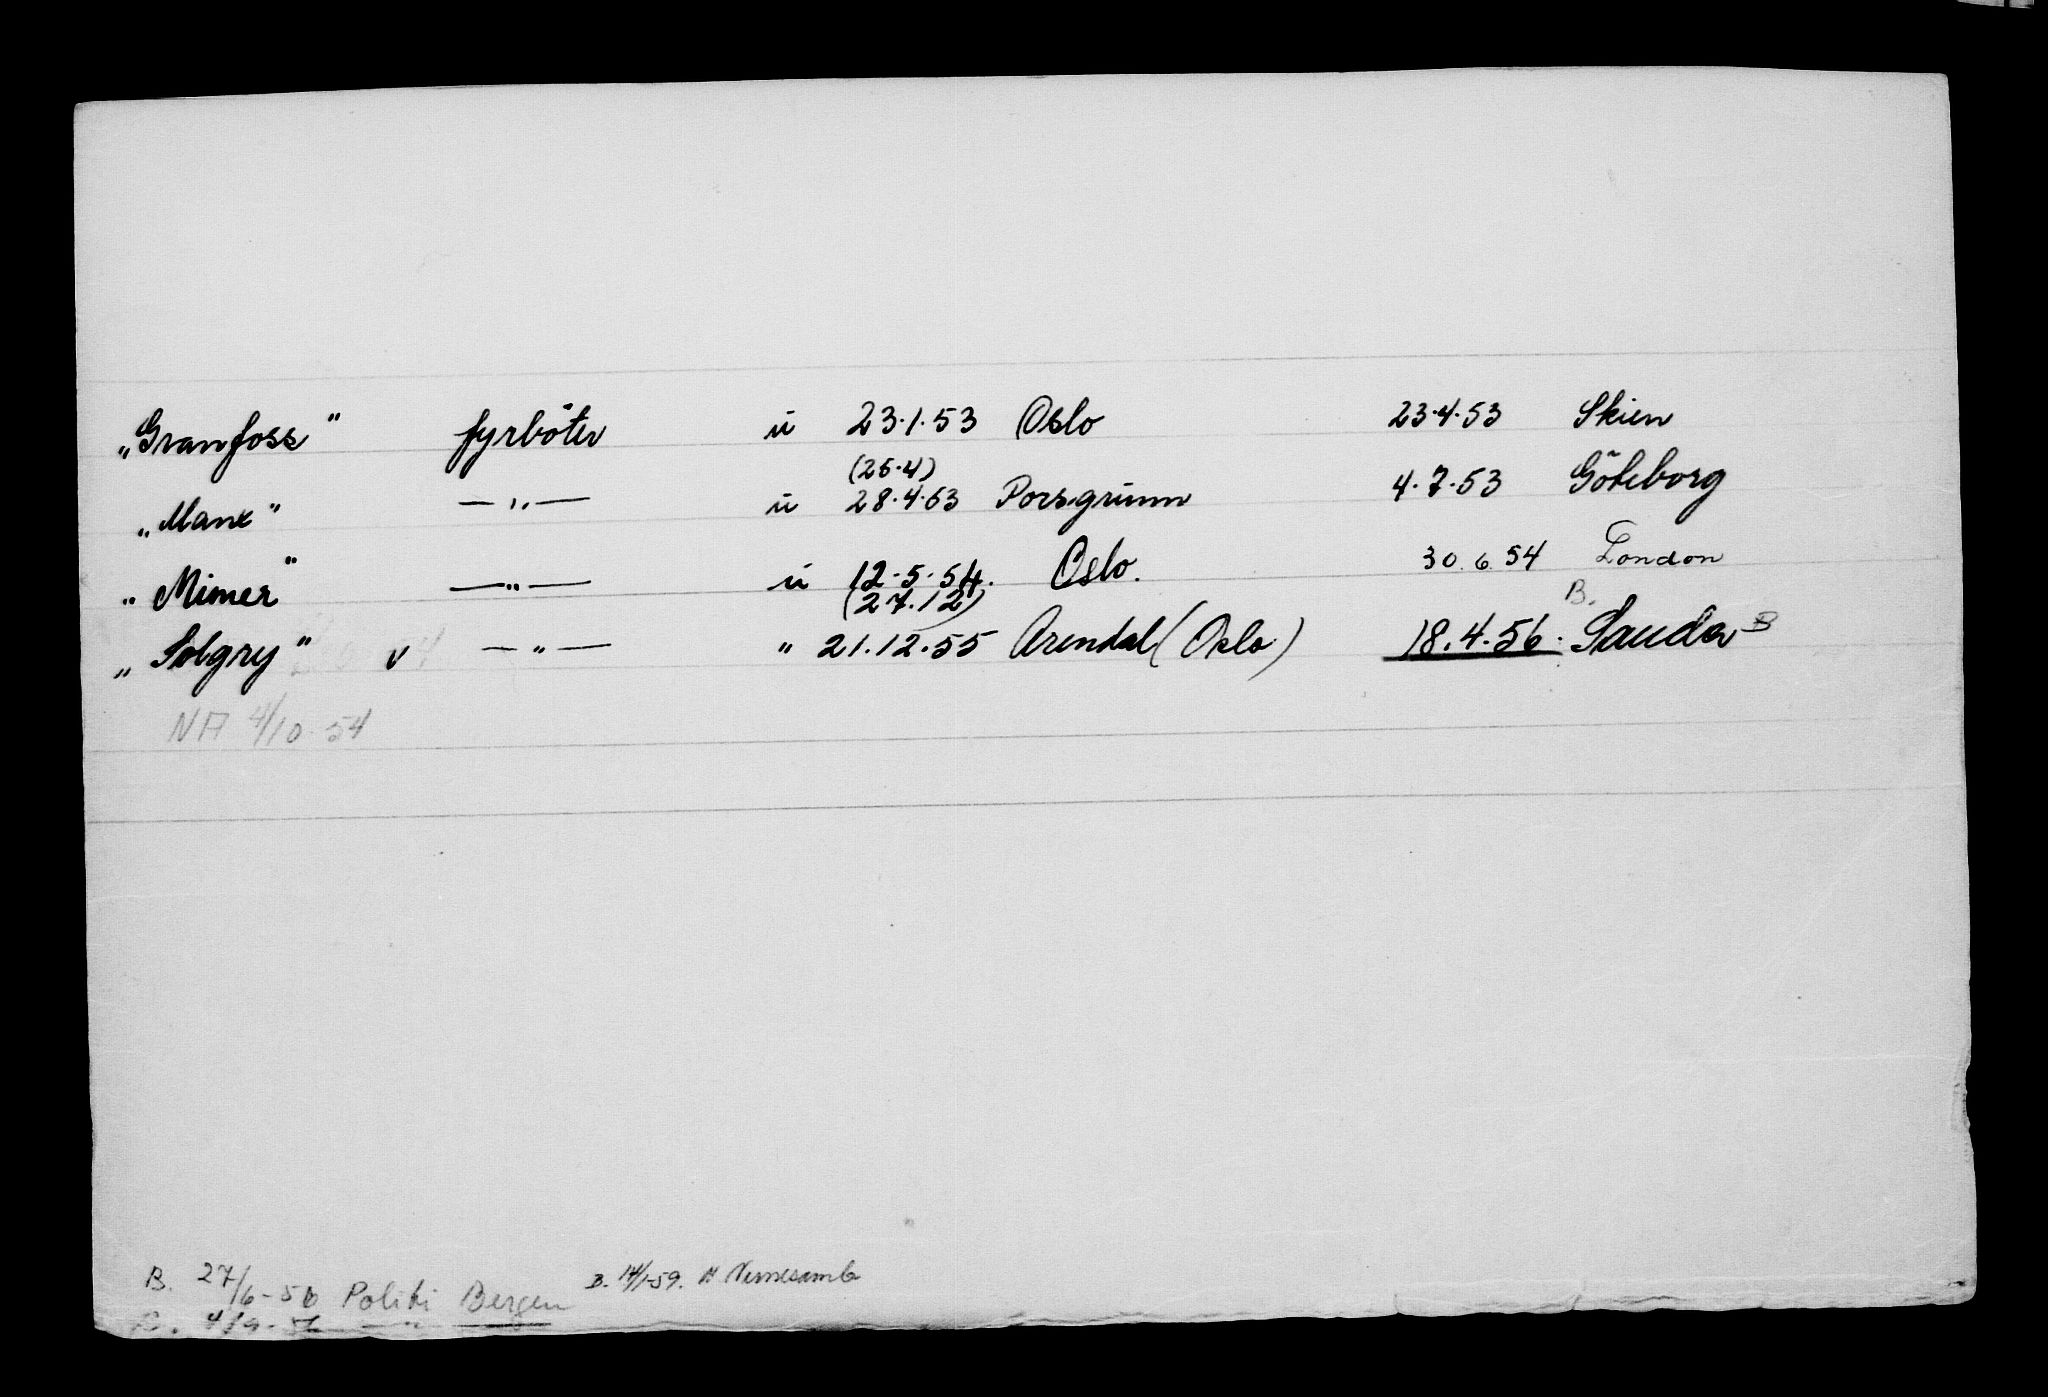 „Granfoss" fyrböter u 23.1.53 Oslo 23.4.53 Skien
(25.4)
„Manx" —„— u 28.4.53 Porsgrunn 4.7.53 Göteborg
„Mimer" —„— u 12.5.54. Oslo. 30.6.54 London
(27.12) B.
„Solgry" v —„— „ 21.12.55 Arendal (Oslo) 18.4.56. Sauda B
NA 4/10-54
B. 27/6-56 Politi Bergen B. 14/1-59. A
4/9-56 —„—